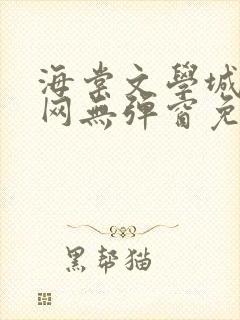 海棠文學城
网無弹窗免
黑帮猫